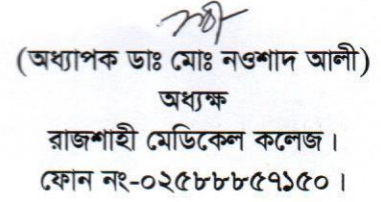 (অধ্যাপক ডাঃ মোঃ নওশাদ আলী)
অধ্যক্ষ
রাজশাহী মেডিকেল কলেজ।
ফোন নং-০২৫৮৮৮৫৭১৫০।